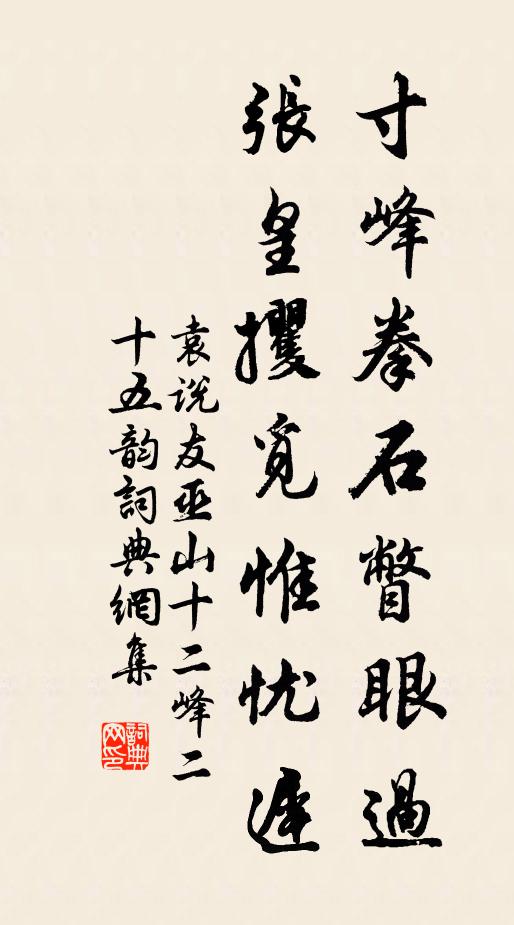 寸峰拳石瞥眼過
張皇攫覓惟忧遲
袁説友巫山十二峰二
十五韵詞典網集
詞典
网印